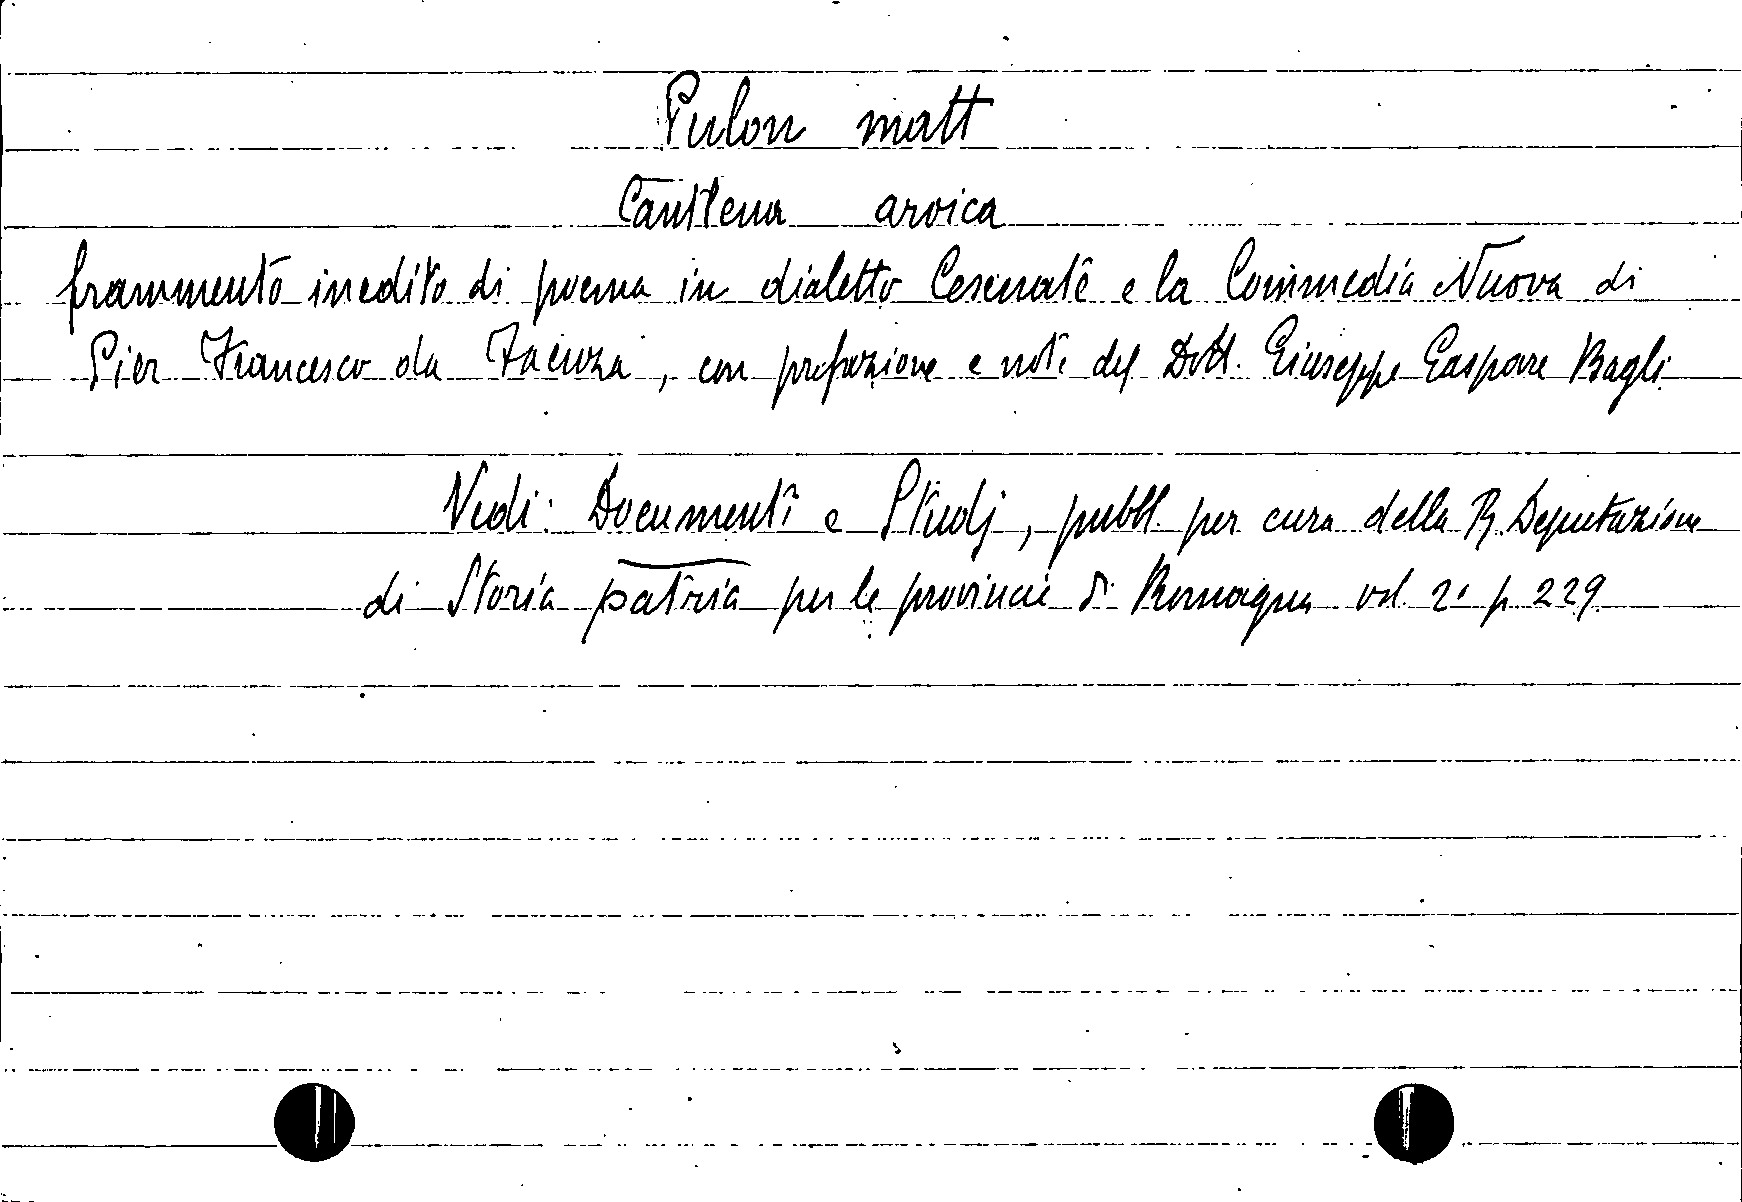 Pulon matt
Cantlena aroica
frammento inedito di poema in dialetto Cesenate e la Commedia Nuova di
Pier Francesco da Faenza, con prefazione e note del Dott. Giuseppe Gaspare Bagli
Vedi: Documenti e Studj, pubbl. per cura della R. Deputazione
di Storia patria per le provincie di Romagna vol 2º p 229